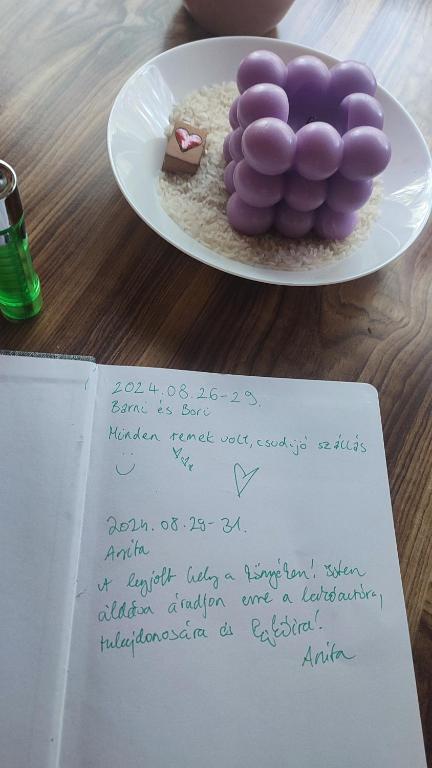 2024.08.26-29.
Barni és Bori
Minden remek volt, csudijó szállás
2024. 08.29-31.
Anita
A legjobb hely a környéken! Isten
áldása áradjon erre a
tulajdonosára és
Anita